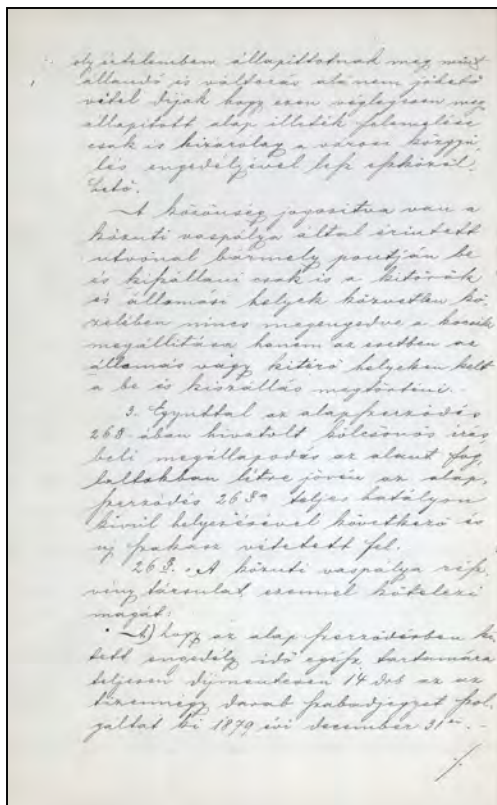 oly értelemben állapittatnak meg mint
állandó és változás alá nem jöhető
vitel dijak hogy ezen véglegesen meg
állapitott alap illeték felemelése
csak is kizárolag a városi közgyü,
lés engedélyével lesz eszközöl,
hető.
A közönség jogositva van a
közuti vaspálya által érintett
utvonal bármely pontján be
és kiszállani csak is a kitérők
és állomási helyek közvetlen kö,
zelében nincs megengedve a kocsik
megállitása hanem az esetben az
állomás vagy kitérő helyeken kell
a be és kiszállás megtörténni.-
3. Egyuttal az alapszerződés
26§-ában hivatolt kölcsönös irás,
beli megállapodás az alant fog,
laltakban létre jövén az alap,
szerződés 26§a teljes hatályon
kivül helyezésével következő és
uj szakasz vétetett fel.
26§. A közuti vaspálya rész,
vény társulat ezennel kötelezi
magát:
A) hogy az alap szerződésben ki
tett engedély idő egész tartamára
teljesen díjmentesen 14 drb az az
tizennégy darab szabadjegyet szol,
gáltat ki 1879 évi december 31én.-
./.